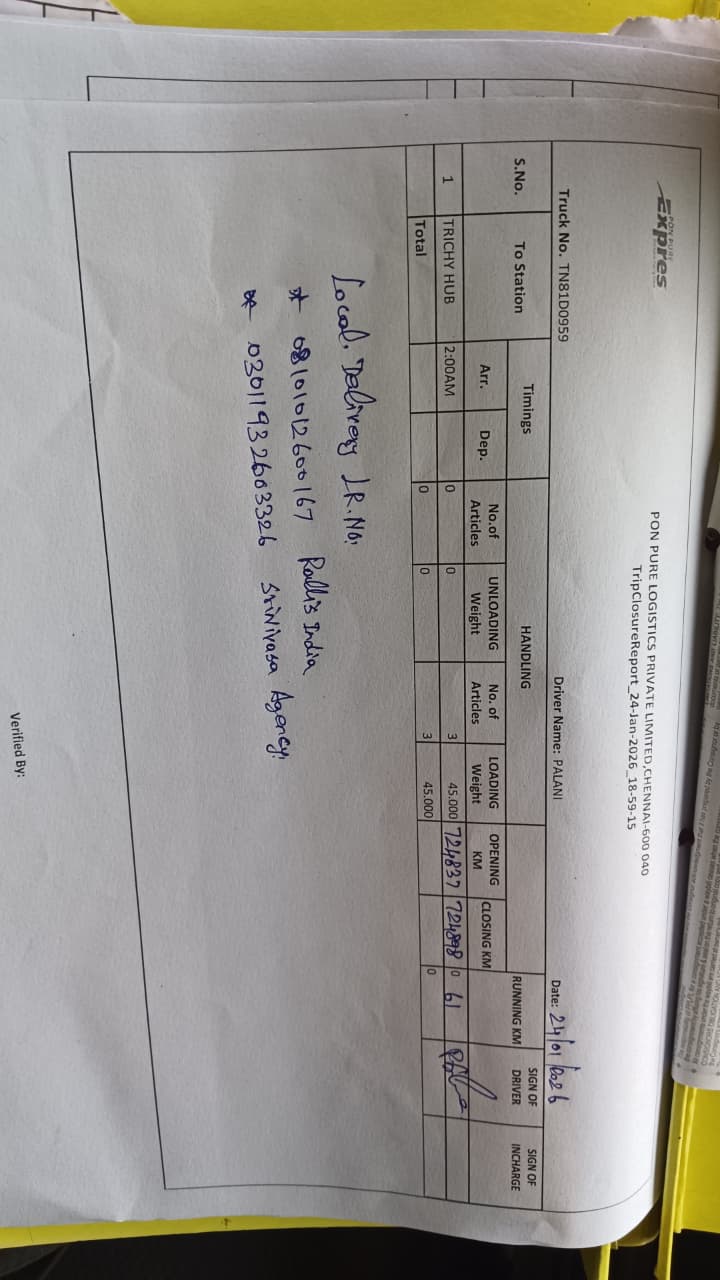 PON PURE
Expres
PON PURE LOGISTICS PRIVATE LIMITED,CHENNAI-600 040
TripClosureReport_24-Jan-2026_18-59-15
Truck No. TN81D0959 Driver Name: PALANI Date: 24/01/2026
S.No. To Station Timings HANDLING RUNNING KM SIGN OF DRIVER SIGN OF INCHARGE
Arr. Dep. No.of Articles UNLOADING Weight No. of Articles LOADING Weight OPENING KM CLOSING KM
1 TRICHY HUB 2:00AM 0 0 3 45.000 724837 724898 0 61
Total 0 0 3 45.000 0
Local. Delivery LR.No:
* 08101012600167 Rallis India
* 03011932603326 Srinivasa Agency.
Verified By: